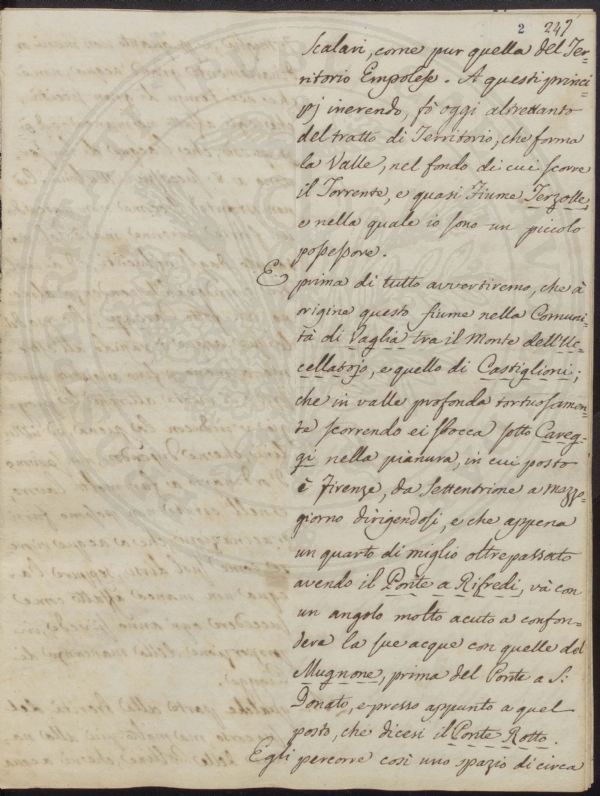 2 247
Scalari, come pur quella del Ter=
ritorio Empolese. A questi princi=
pj inerendo, fò oggi altrettanto
del tratto di Territorio, che forma
la Valle, nel fondo di cui scorre
il Torrente, e quasi Fiume Terzolle,
e nella quale io sono un piccolo
possessore.
E prima di tutto avvertiremo, che à
origine questo fiume nella Comuni=
tà di Vaglia tra il Monte dell'Uc=
cellatojo, e quello di Castiglioni;
che in valle profonda tortuosamen=
te scorrendo ei sbocca sotto Careg=
gi nella pianura, in cui posto
è Firenze, da Settentrione a Mezzo=
giorno dirigendosi, e che appena
un quarto di miglio oltrepassato
avendo il Ponte a Rifredi, và con
un angolo molto acuto a confon=
dere la sue acque con quelle del
Mugnone, prima del Ponte a S:
Donato, e presso appunto a quel
posto, che dicesi il Ponte Rotto.
Egli percorre così uno spazio di circa